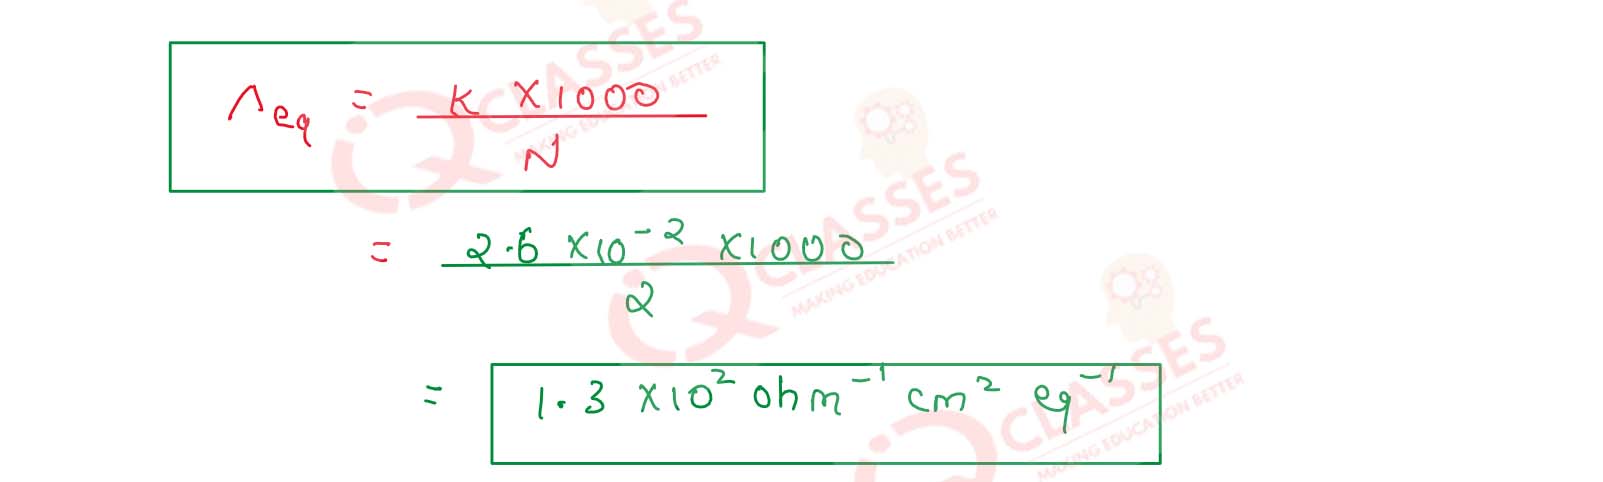 Λeq = K × 1000 / N
= 2.6 × 10⁻² × 1000 / 2
= 1.3 × 10² ohm⁻¹ cm² eq⁻¹
iQ CLASSES
MAKING EDUCATION BETTER
iQ CLASSES
MAKING EDUCATION BETTER
iQ CLASSES
MAKING EDUCATION BETTER